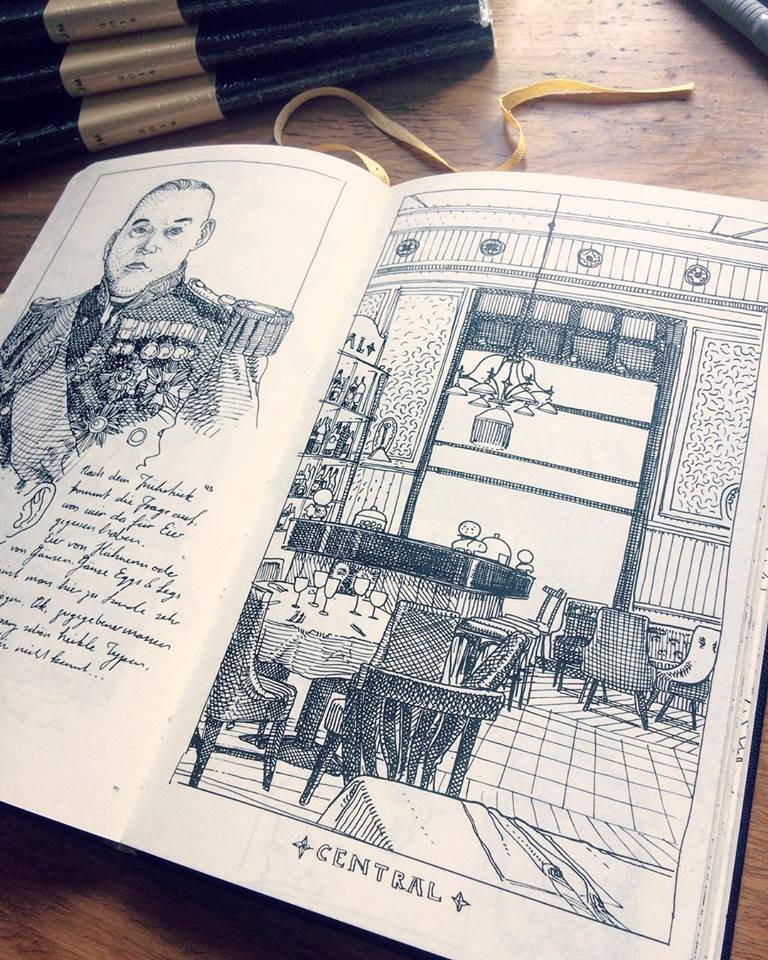 Nach dem Frühstück
kommt die Frage auf,
was wir da für Eier
gegessen haben.
Eier von Hühnern oder
von Gänsen. Gänse Eggs & Legs
man hier zu Lande sehr
Ok, zugegebenermassen
schön heikle Typen,
nicht kennt...
AL
CENTRAL